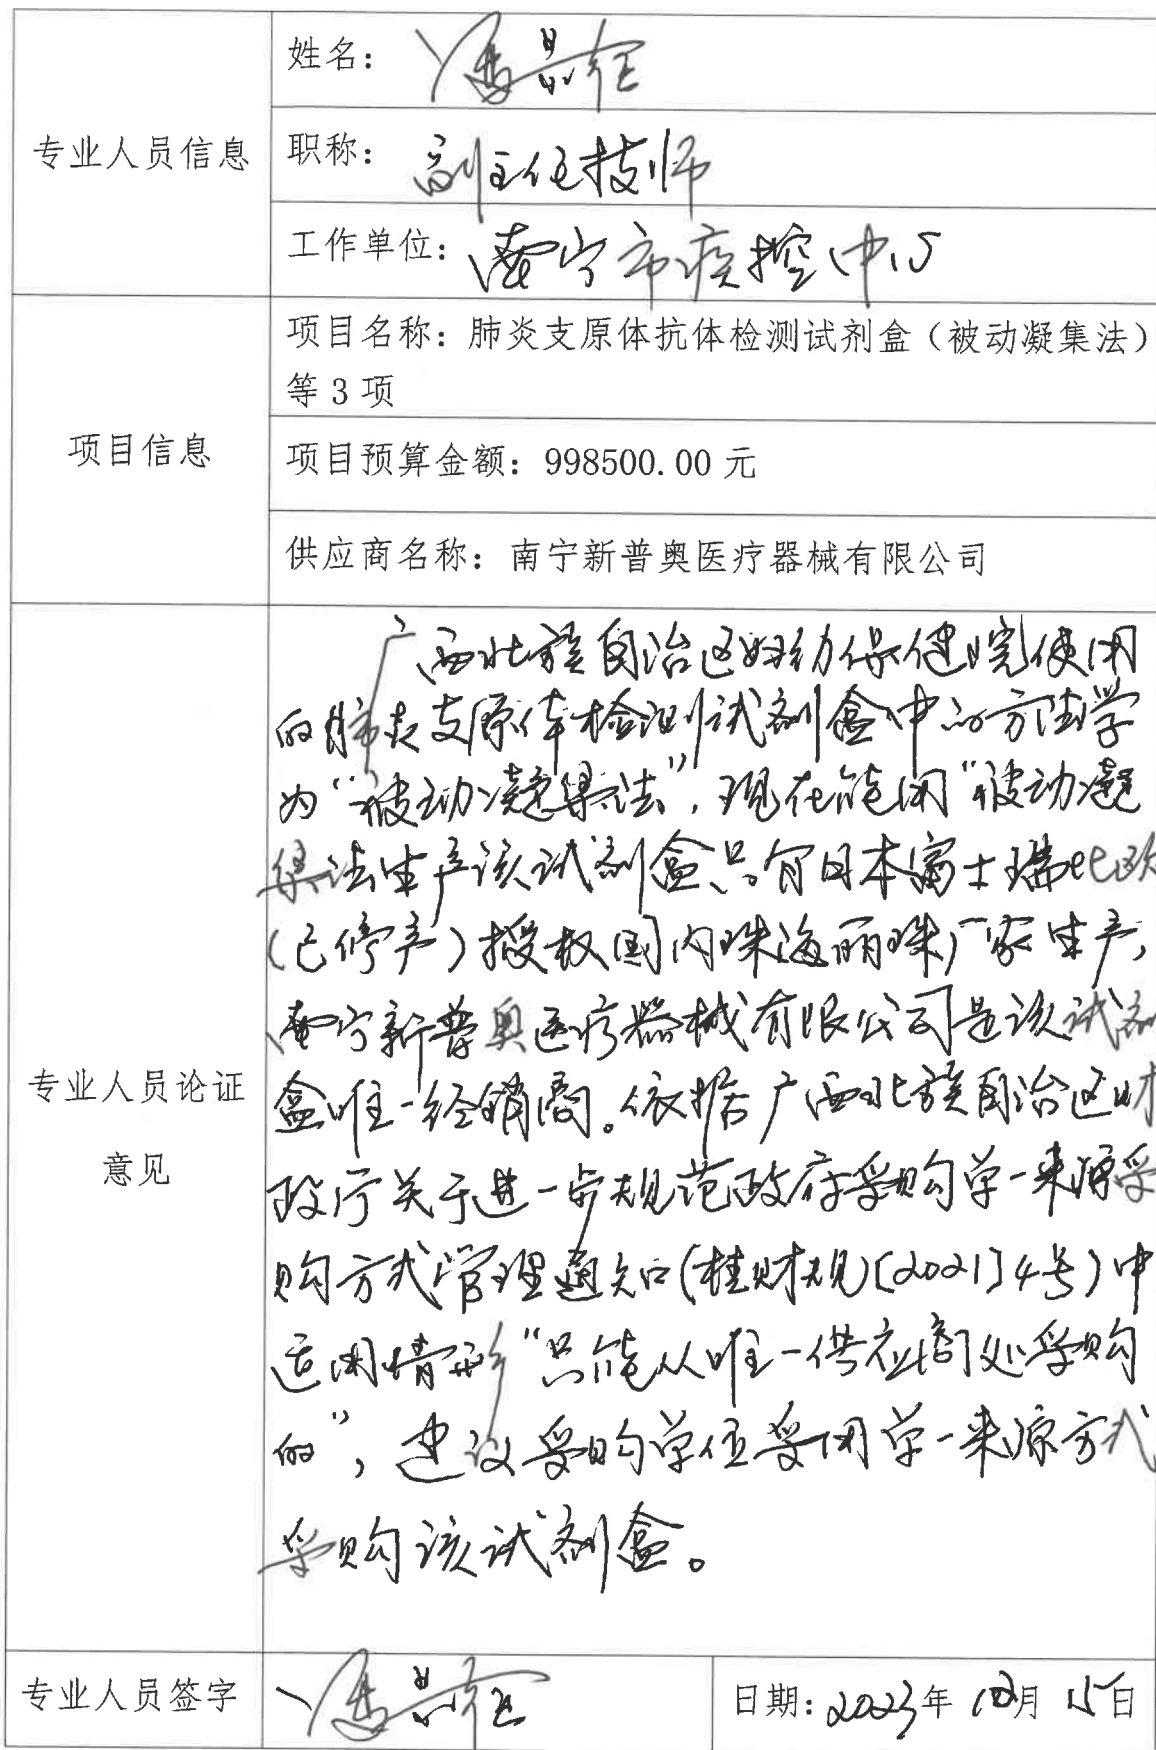 专业人员信息
姓名：
职称：副主任技师
工作单位：南宁市疾控中心
项目信息
项目名称：肺炎支原体抗体检测试剂盒（被动凝集法）
等 3 项
项目预算金额：998500.00 元
供应商名称：南宁新普奥医疗器械有限公司
专业人员论证
意见
广西壮族自治区妇幼保健院使用
的肺炎支原体检测试剂盒中的方法学
为“被动凝集法”，现在能用“被动凝
集法生产该试剂盒只有日本富士瑞比欧
（已停产）授权国内珠海丽珠厂家生产，
南宁新普奥医疗器械有限公司是该试剂
盒唯一经销商。依据广西壮族自治区财
政厅关于进一步规范政府采购单一来源采
购方式管理通知(桂财规〔2021〕4号)中
适用情形“只能从唯一供应商处采购
的”，建议采购单位采用单一来源方式
采购该试剂盒。
专业人员签字
日期：2023年 月 15日